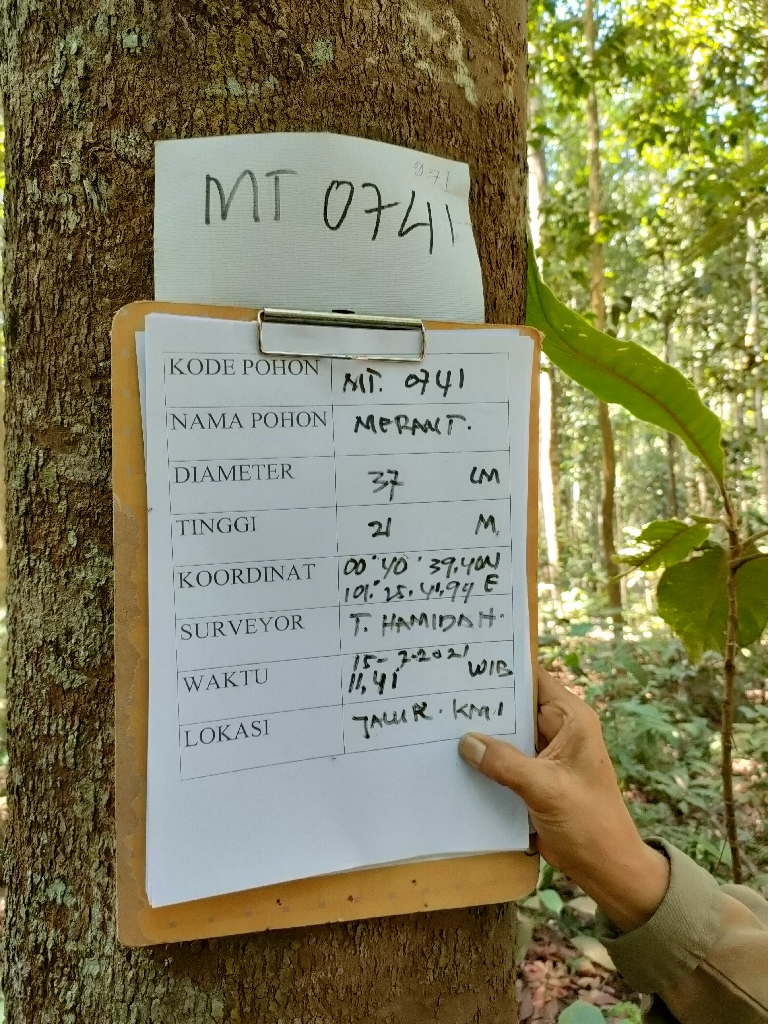 MT 0741
KODE POHON MT. 0741
NAMA POHON MERANT.
DIAMETER 37 CM
TINGGI 21 M,
KOORDINAT 00°40'39,40N
101°25.41,99 E
SURVEYOR T. HAMIDAH.
WAKTU 15-7-2021
11,41 WIB
LOKASI JALUR. KM.1